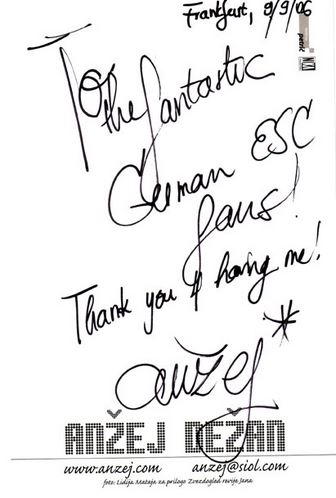 Frankfurt, 9/9/06
To the fantastic
German ESC
fans!
Thank you 4 having me!
anžej *
ANŽEJ DEŽAN
www.anzej.com anzej@siol.com
foto: Lidija Mataja za prilogo Zvezdogled revije Jana